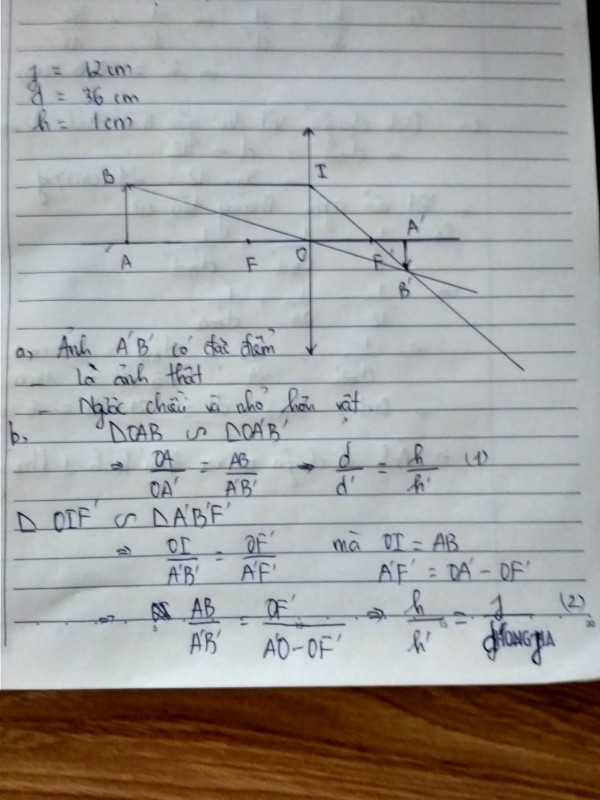 f = 12 cm
d = 36 cm
h = 1 cm
B I
A F O F' A'
B'
a, Ảnh A'B' có đặc điểm
- Là ảnh thật
- Ngược chiều và nhỏ hơn vật
b. ΔOAB ∽ ΔOA'B'
⇒ OA/OA' = AB/A'B' ⇒ d/d' = h/h' (1)
Δ OIF' ∽ ΔA'B'F'
⇒ OI/A'B' = OF'/A'F' mà OI = AB
A'F' = OA' - OF'
⇒ AB/A'B' = OF'/A'O-OF' ⇒ h/h' = f/ (2)
HONG HA